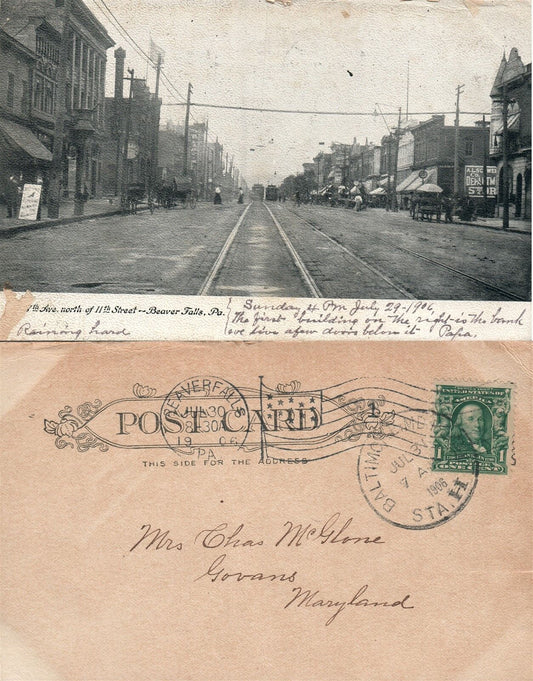 ALSO WE
DEPARTM
STR
7th Ave. north of 11th Street--Beaver Falls, Pa.
Raining hard
Sunday 4 Pm July 29-1906,
The first building on the right is the bank
we live a few doors below it Papa.
POST CARD
1
THIS SIDE FOR THE ADDRESS
BEAVER FALLS
JUL 30
8 30A
1906
PA
UNITED STATES OF AMERICA
1 1
ONE CENT
BALTIMORE, MD.
JUL 31
7 A
1906
STA. H
Mrs Chas McGlone
Govans
Maryland